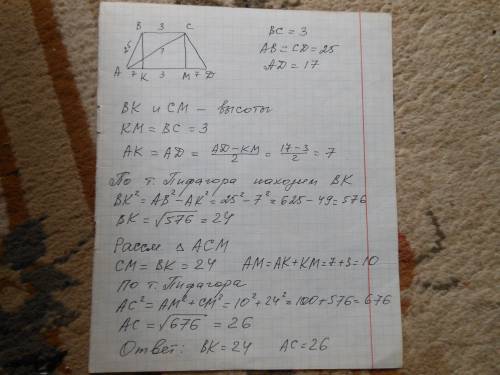 B 3 C
25 ?
A 7 K 3 M 7 D
BC = 3
AB = CD = 25
AD = 17
BK и CM – высоты
KM = BC = 3
AK = AD = \frac{AD-KM}{2} = \frac{17-3}{2} = 7
По т. Пифагора находим BK
BK² = AB² - AK² = 25² - 7² = 625 - 49 = 576
BK = √576 = 24
Рассм △ ACM
CM = BK = 24 AM = AK + KM = 7 + 3 = 10
по т. Пифагора
AC² = AM² + CM² = 10² + 24² = 100 + 576 = 676
AC = √676 = 26
Ответ: BK = 24 AC = 26